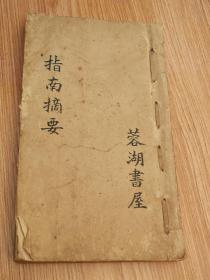 指南摘要
蓉湖書屋